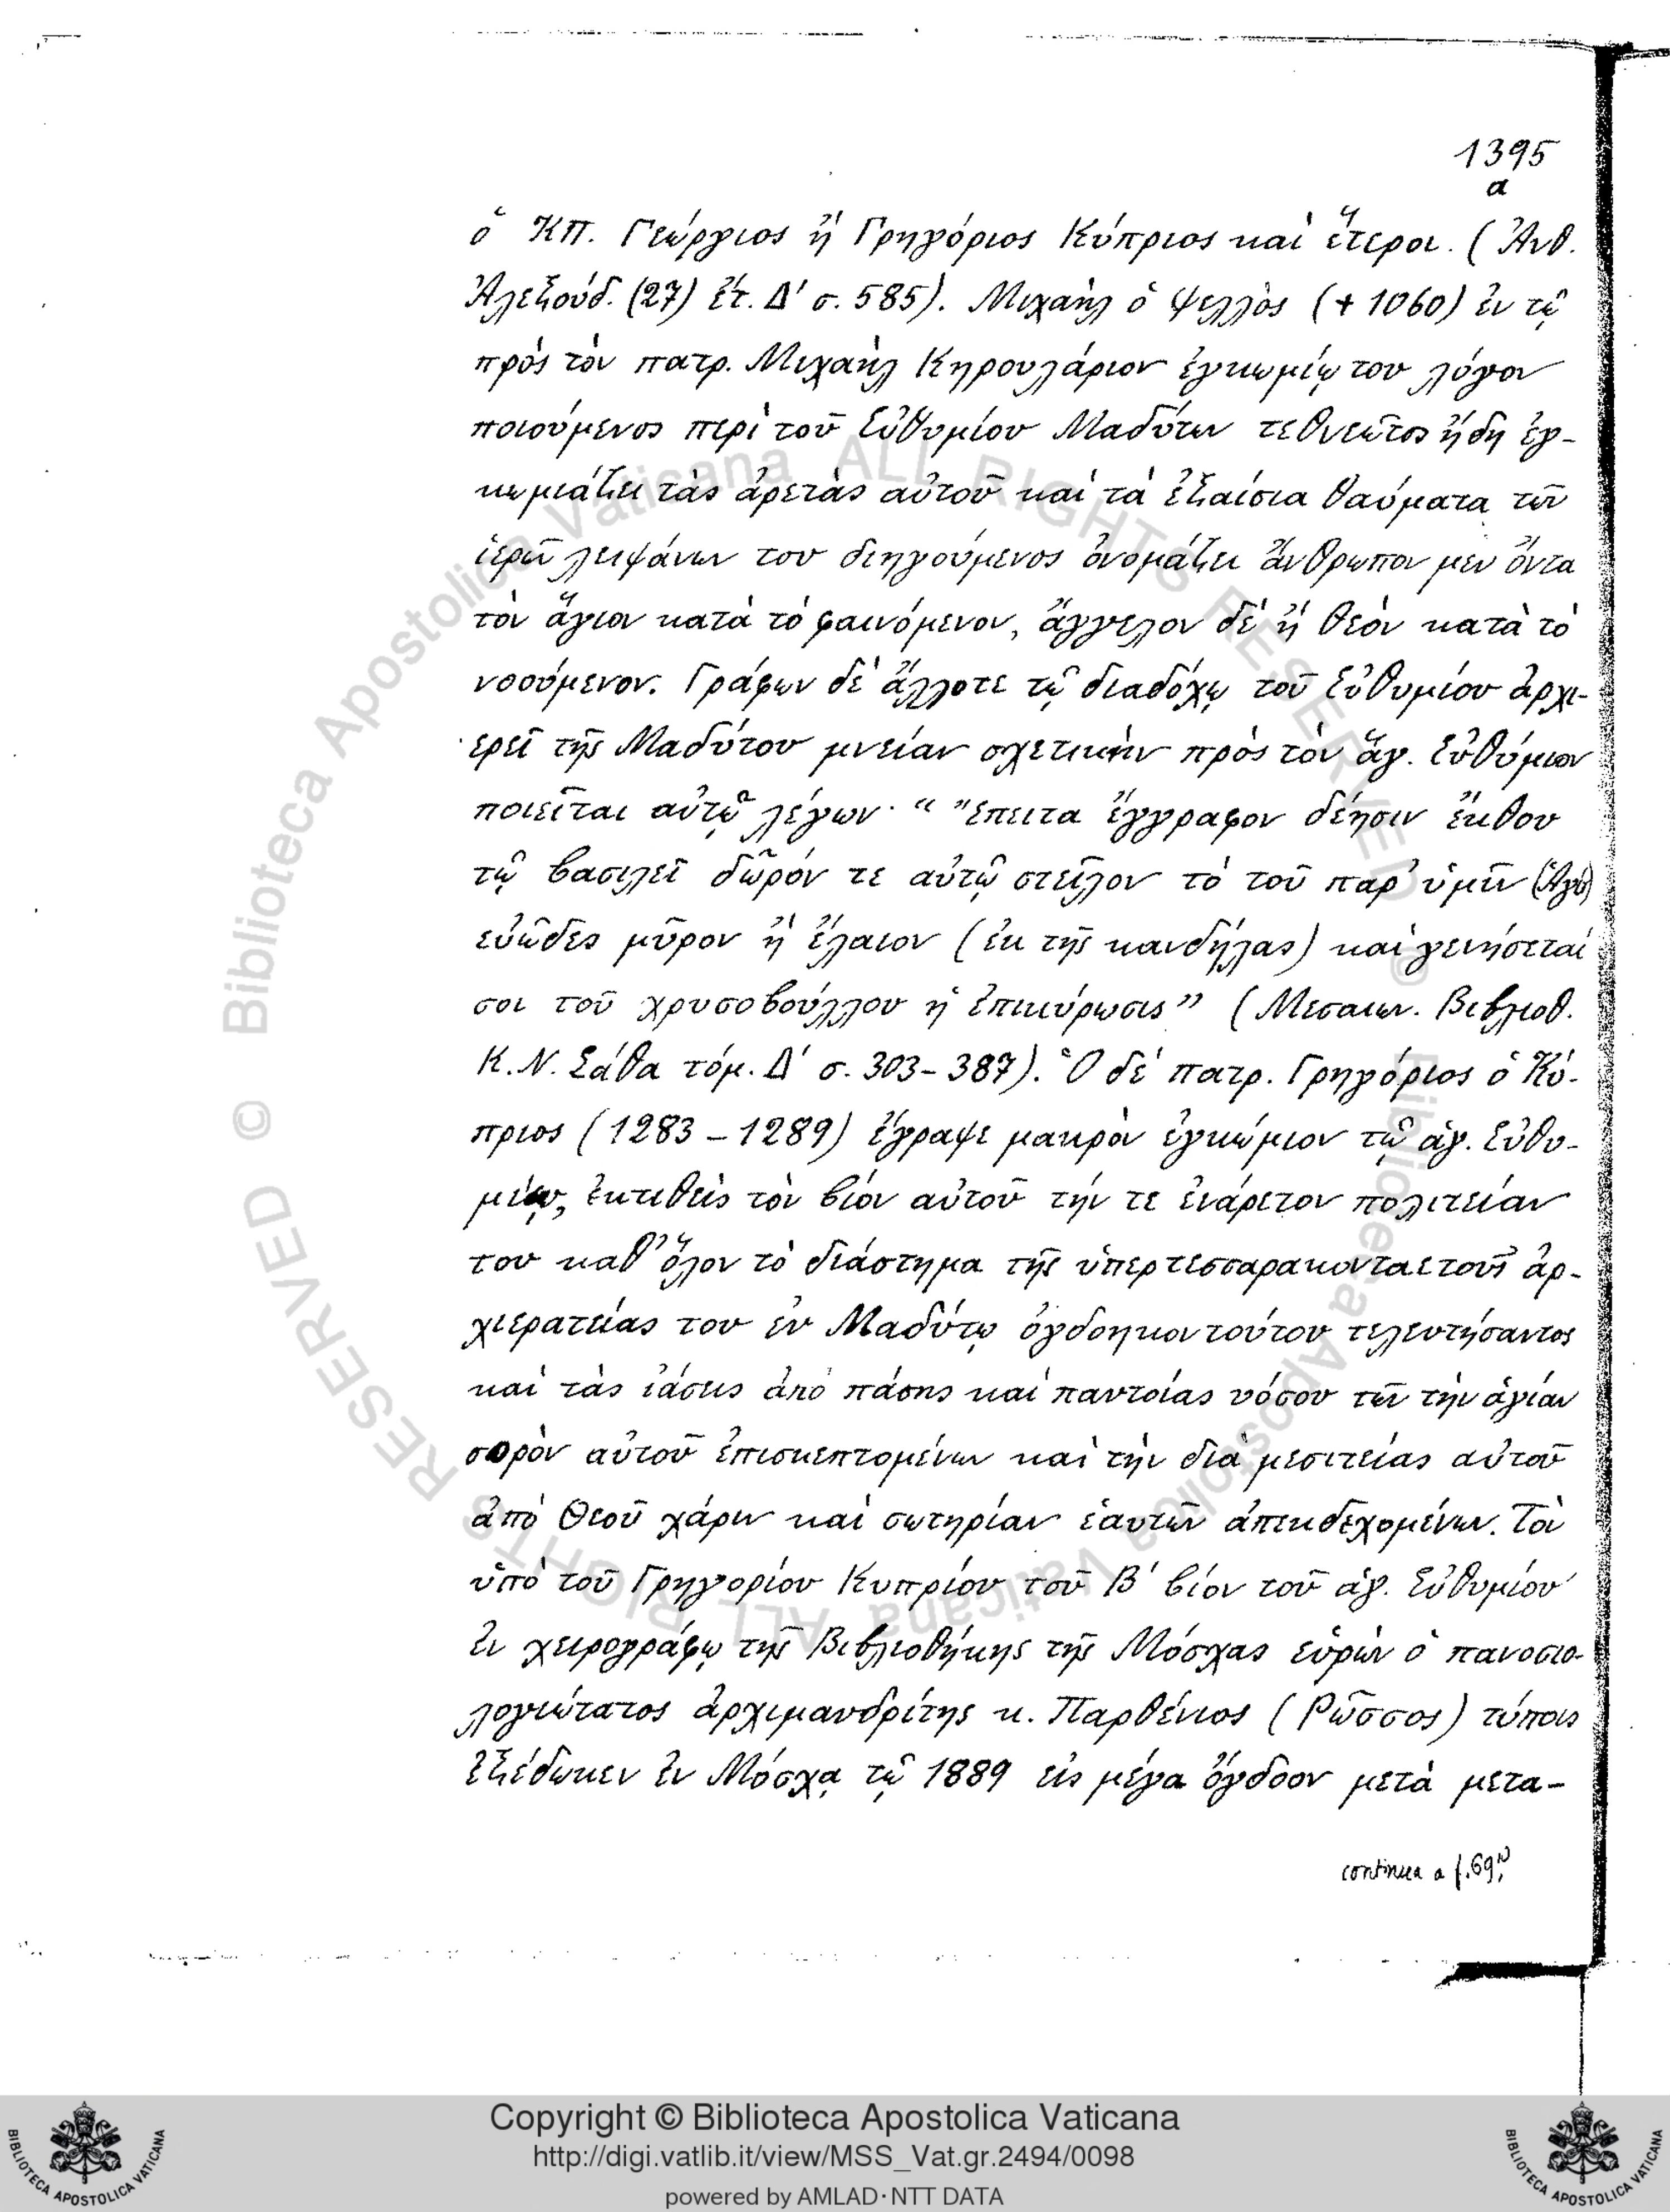 1395
a
ὁ ΚΠ. Γεώργιος ἢ Γρηγόριος Κύπριος καὶ ἕτεροι. (Ἀνθ.
Ἀλεξούδ. (27) ἔτ. Δ' σ. 585). Μιχαὴλ ὁ Ψελλὸς (+ 1060) ἐν τῷ
πρὸς τὸν πατρ. Μιχαὴλ Κηρουλάριον ἐγκωμίῳ του λόγον
ποιούμενος περὶ τοῦ Εὐθυμίου Μαδύτων τεθνεῶτος ἤδη ἐγ-
κωμιάζει τὰς ἀρετὰς αὐτοῦ καὶ τὰ ἐξαίσια θαύματα τῶν
ἱερῶν λειψάνων του διηγούμενος ὀνομάζει ἄνθρωπον μεν ὄντα
τὸν ἅγιον κατὰ τὸ φαινόμενον, ἄγγελον δὲ ἢ θεὸν κατὰ τὸ
νοούμενον. Γράφων δὲ ἄλλοτε τῷ διαδόχῳ τοῦ Εὐθυμίου ἀρχι-
ερεῖ τῆς Μαδύτου μνείαν σχετικὴν πρὸς τὸν ἅγ. Εὐθύμιον
ποιεῖται αὐτῷ λέγων· “ Ἔπειτα ἔγγραφον δέησιν ἔκθου
τῷ βασιλεῖ δῶρόν τε αὐτῷ στεῖλον τὸ τοῦ παρ' ὑμῖν (Ἁγίου)
εὐῶδες μῦρον ἢ ἔλαιον (ἐκ τῆς κανδήλας) καὶ γενήσεταί
σοι τοῦ χρυσοβούλλου ἡ ἐπικύρωσις” (Μεσαιων. Βιβλιοθ.
Κ. Ν. Σάθα τόμ. Δ' σ. 303-387). Ὁ δὲ πατρ. Γρηγόριος ὁ Κύ-
πριος (1283-1289) ἔγραψε μακρὸν ἐγκώμιον τῷ ἁγ. Εὐθυ-
μίῳ, ἐκτιθεὶς τὸν βίον αὐτοῦ τήν τε ἐνάρετον πολιτείαν
του καθ' ὅλον τὸ διάστημα τῆς ὑπερτεσσαρακονταετοῦς ἀρ-
χιερατείας του ἐν Μαδύτῳ ὀγδοηκοντούτου τελευτήσαντος
καὶ τὰς ἰάσεις ἀπὸ πάσης καὶ παντοίας νόσου τῶν τὴν ἁγίαν
σορὸν αὐτοῦ ἐπισκεπτομένων καὶ τὴν διὰ μεσιτείας αὐτοῦ
ἀπὸ Θεοῦ χάριν καὶ σωτηρίαν ἑαυτῶν ἀπεκδεχομένων. Τὸν
ὑπὸ τοῦ Γρηγορίου Κυπρίου τοῦ Β' βίον τοῦ ἁγ. Εὐθυμίου
ἐν χειρογράφῳ τῆς Βιβλιοθήκης τῆς Μόσχας εὑρὼν ὁ πανοσιο-
λογιώτατος ἀρχιμανδρίτης κ. Παρθένιος (Ρῶσσος) τύποις
ἐξέδωκεν ἐν Μόσχᾳ τῷ 1889 εἰς μέγα ὄγδοον μετὰ μετα-
continua a f. 69v
© Biblioteca Apostolica Vaticana ALL RIGHTS RESERVED © Biblioteca Apostolica Vaticana ALL RIGHTS RESERVED
Copyright © Biblioteca Apostolica Vaticana
http://digi.vatlib.it/view/MSS_Vat.gr.2494/0098
powered by AMLAD·NTT DATA
BIBLIOTECA APOSTOLICA VATICANA
BIBLIOTECA APOSTOLICA VATICANA